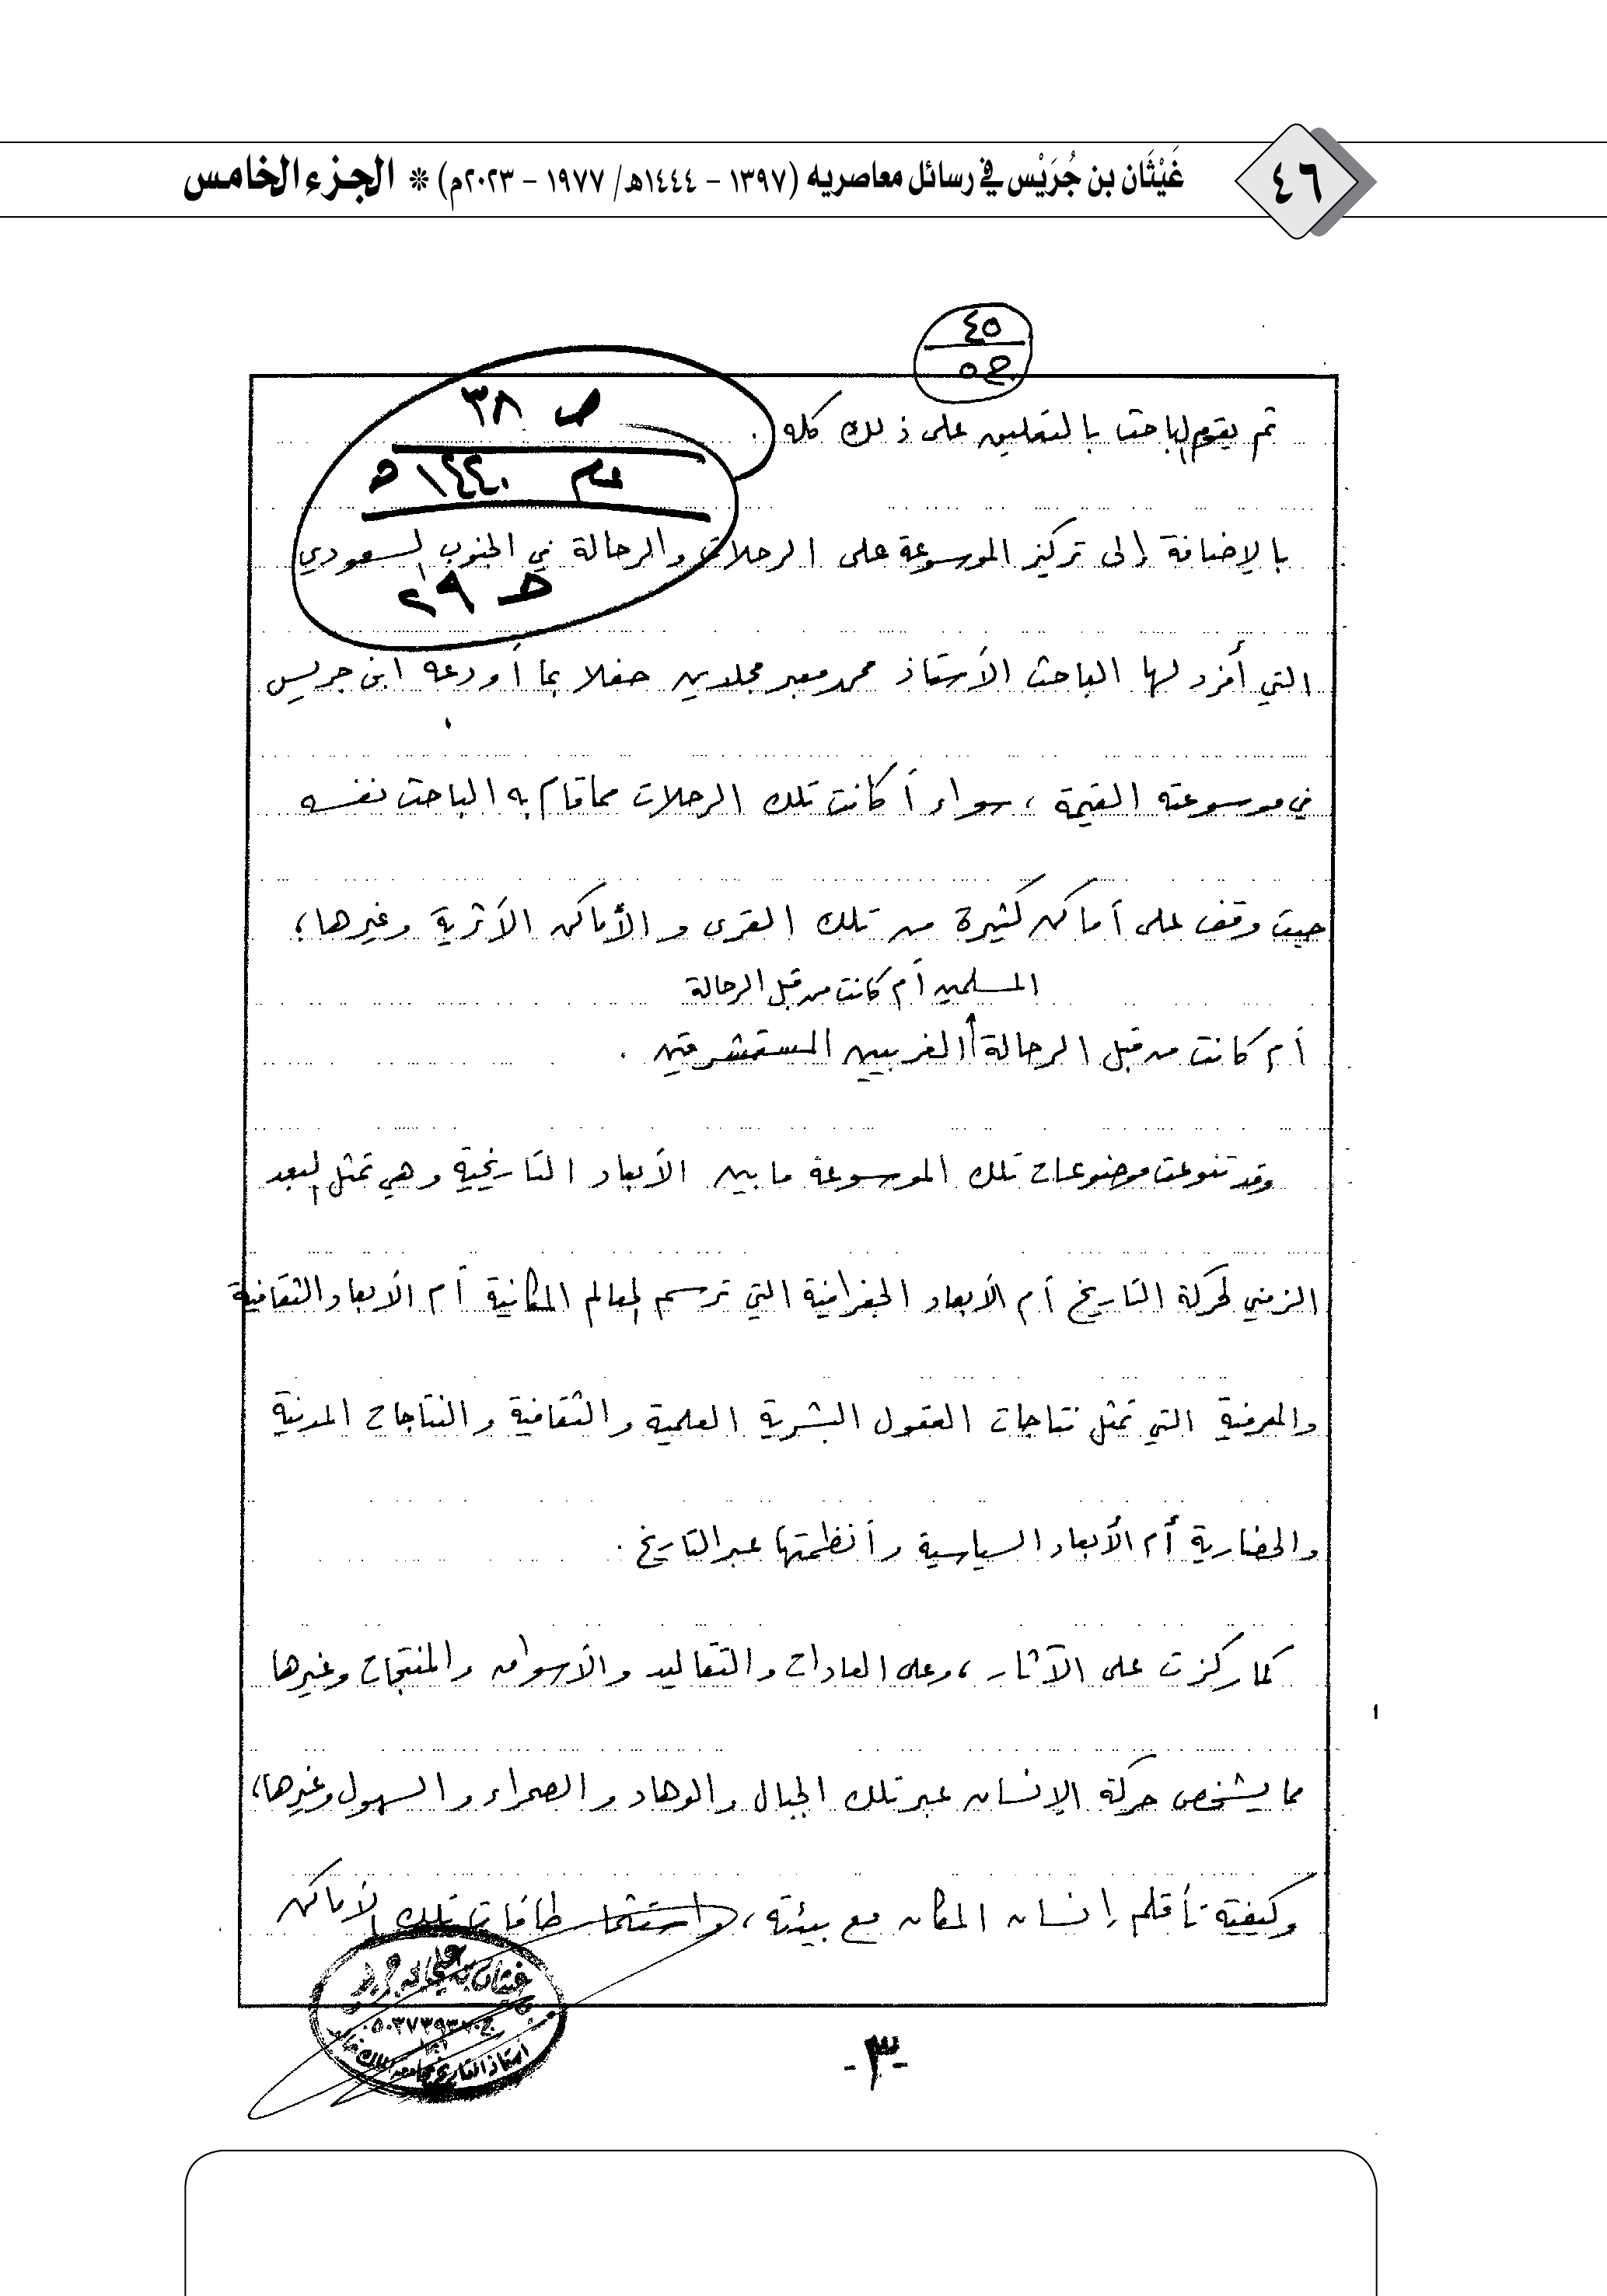 ٤٦
غَيْثَان بن جُرَيْس في رسائل معاصريه (١٣٩٧ - ١٤٤٤هـ/ ١٩٧٧ - ٢٠٢٣م) * الجزء الخامس
٤٥
ج٥
ص ٣٨
عام ١٤٤٠هـ
ط ٢٩
ثم يقوم الباحث بالتعليق على ذلك كله .
بالإضافة إلى تركيز الموسوعة على الرحلات والرحالة في الجنوب السعودي
التي أفرد لها الباحث الأستاذ محمد معبر مجلدين حفلا بما أودعه ابن جريس
في موسوعته القيمة ، سواء أكانت تلك الرحلات مما قام به الباحث نفسه
حيث وقف على أماكن كثيرة من تلك القرى والأماكن الأثرية وغيرها ؛
المسلمين أم كانت من قبل الرحالة
أم كانت من قبل الرحالة الغربيين المستشرقين .
وقد تنوعت موضوعات تلك الموسوعة ما بين الأبعاد التاريخية وهي تمثل البعد
الزمني لحركة التاريخ أم الأبعاد الجغرافية التي ترسم المعالم المكانية أم الأبعاد الثقافية
والمعرفية التي تمثل نتاجات العقول البشرية العلمية والثقافية والنتاجات المدنية
والحضارية أم الأبعاد السياسية وأنظمتها عبر التاريخ .
كما ركزت على الآثار ، وعلى العادات والتقاليد والأسواق والمنتجات وغيرها
مما يشخص حركة الإنسان عبر تلك الجبال والوهاد والصحراء والسهول وغيرها ،
وكيفية تأقلم إنسان المكان مع بيئته ، واستثمار طاقات تلك الأماكن
غيثان بن علي بن جريس
أستاذ التاريخ بجامعة الملك خالد
-٣-